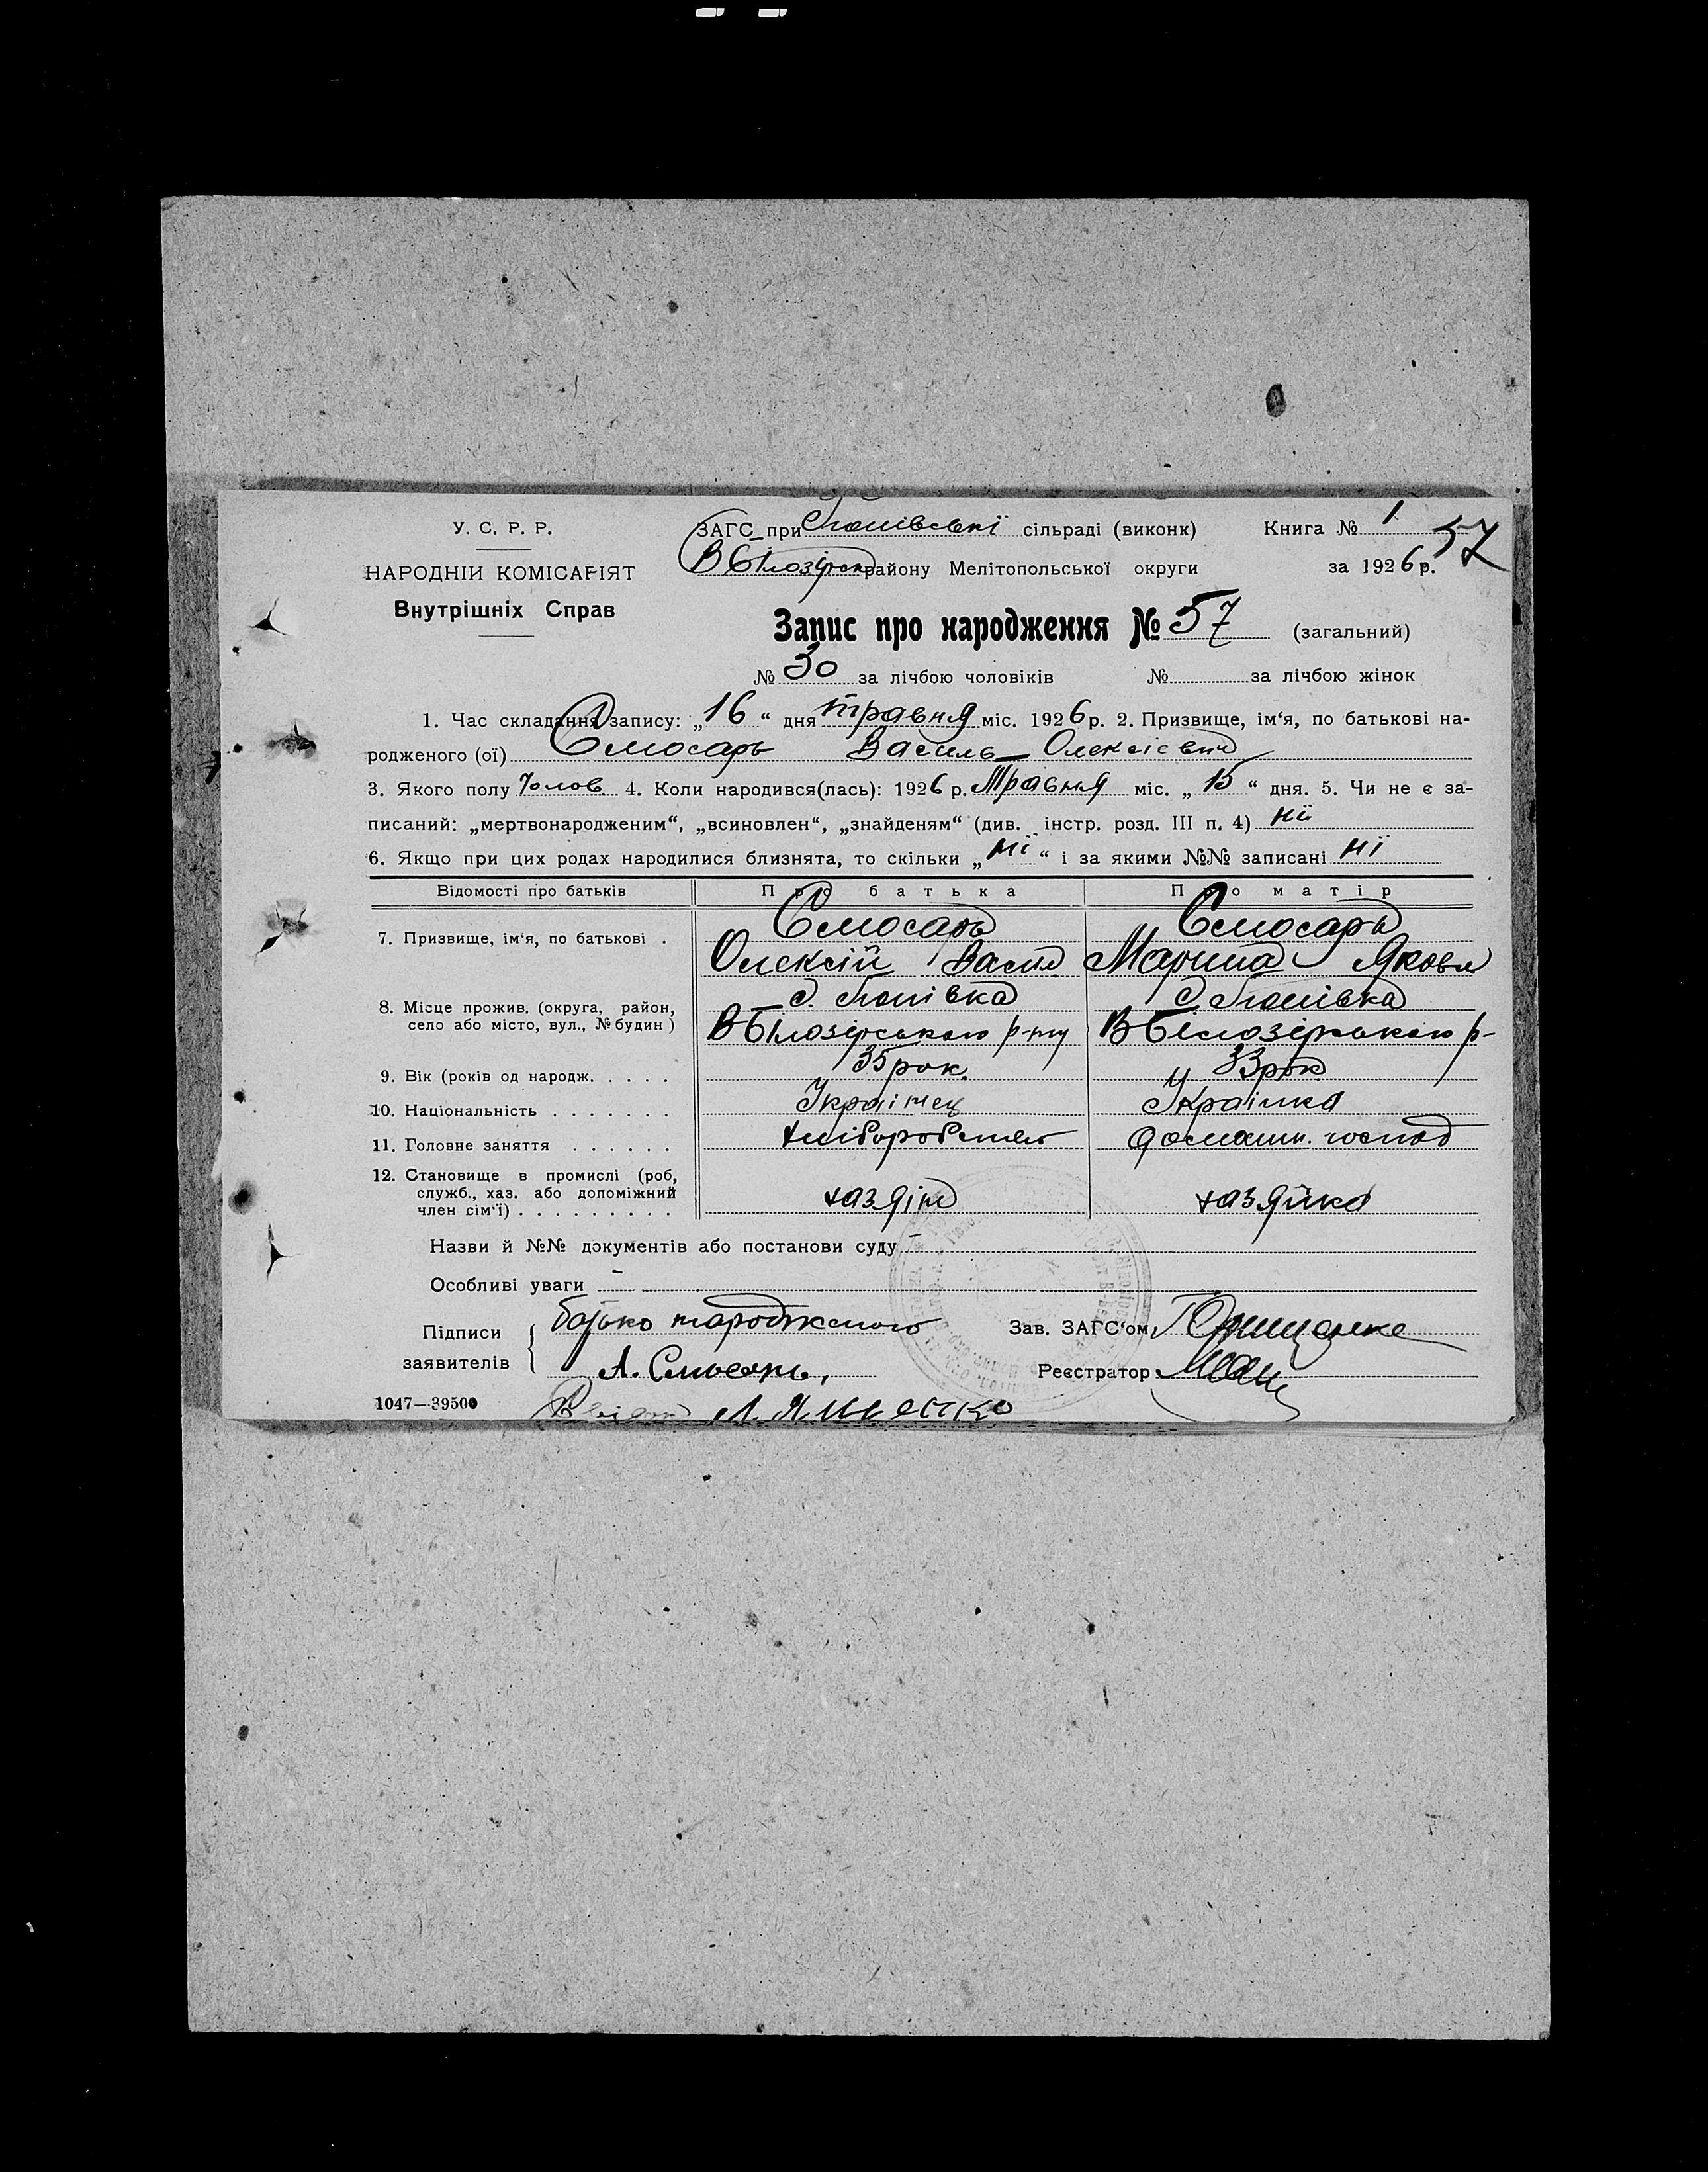 У. С. Р. Р.
НАРОДНІЙ КОМІСАРІЯТ
Внутрішніх Справ
ЗАГС при сільраді (виконк) Книга № 1 57
В Білозірськ району Мелітопольської округи за 1926 р.
Запис про народження № 57 (загальний)
№ 30 за лічбою чоловіків № за лічбою жінок
1. Час складання запису: „16“ дня травня міс. 1926 р. 2. Призвище, ім‘я, по батькові на-
родженого (ої) Слюсарь Василь Олексієвич
3. Якого полу Чолов. 4. Коли народився(лась): 1926 р. Травня міс. „15“ дня. 5. Чи не є за-
писаний: „мертвонародженим“, „всиновлен“, „знайденям“ (див. інстр. розд. III п. 4) ні
6. Якщо при цих родах народилися близнята, то скільки „ні“ і за якими №№ записані ні
Відомості про батьків Про батька Про матір
7. Призвище, ім‘я, по батькові . Слюсарь Слюсарь
Олексій Васил Марина Яковл
8. Місце прожив. (округа, район, село або місто, вул., № будин)
В Білозірського р-ну В Білозірського р-
9. Вік (років од народж. . . . . 35 рок. 33 рок
10. Національність . . . . . . . Українец Українка
11. Головне заняття . . . . . . хліборобство домашн. господ
12. Становище в промислі (роб, служб., хаз. або допоміжний член сім‘ї) . . . . . . . . . хазяїн хазяйка
Назви й №№ документів або постанови суду –
Особливі уваги –
Підписи заявителів батько народженого
А. Слюсарь,
Зав. ЗАГС‘ом
Реєстратор
1047—39500